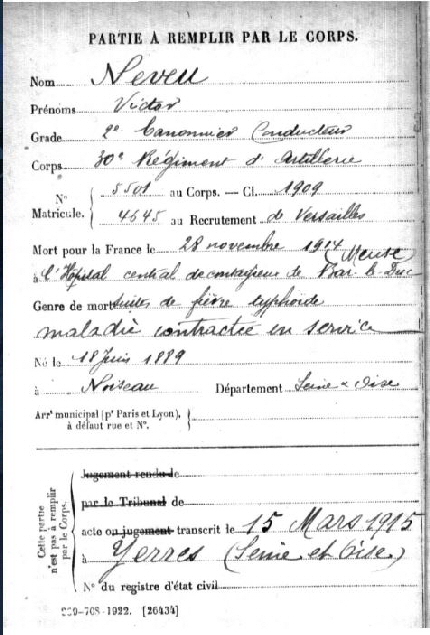 PARTIE A REMPLIR PAR LE CORPS.
Nom Neveu
Prénoms Victor
Grade 2e Canonnier Conducteur
Corps 30e Régiment d'Artillerie
No 5501 au Corps. — Cl. 1909
Matricule. 4645 au Recrutement de Versailles
Mort pour la France le 28 novembre 1914
à l'Hopital central de contagieux de Bar le Duc (Meuse)
Genre de mort suites de fièvre typhoïde
maladie contractée en service
Né le 18 Juin 1889
à Noiseau Département Seine & Oise
Arrt municipal (pr Paris et Lyon), à défaut rue et No.
Cette partie n'est pas à remplir par le Corps.
Jugement rendu le
par le Tribunal de
acte ou jugement transcrit le 15 Mars 1915
à Yerres (Seine et Oise)
No du registre d'état civil
-708-1922. [26434]